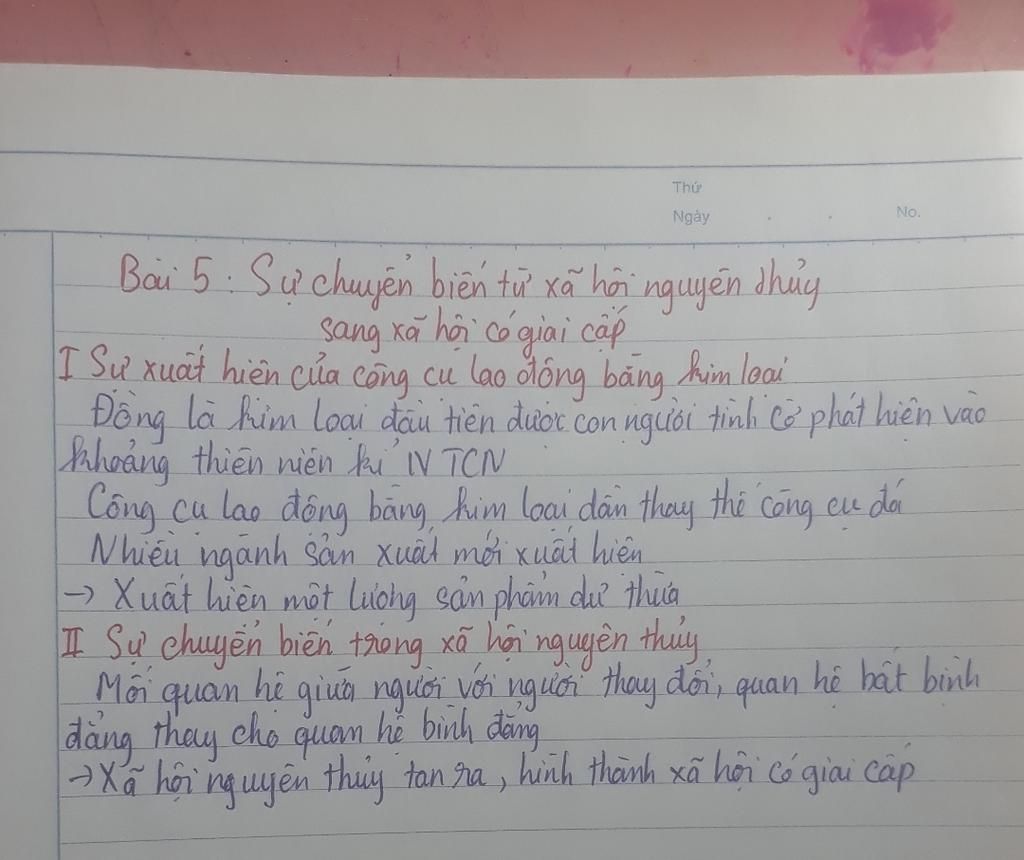 Thứ
Ngày . . No.
Bài 5 : Sự chuyển biến từ xã hội nguyên thủy
sang xã hội có giai cấp
I Sự xuất hiện của công cụ lao động bằng kim loại
Đồng là kim loại đầu tiên được con người tình cờ phát hiện vào
khoảng thiên niên kỉ IV TCN
Công cụ lao động bằng kim loại dần thay thế công cụ đá
Nhiều ngành sản xuất mới xuất hiện
→ Xuất hiện một lượng sản phẩm dư thừa
II Sự chuyển biến trong xã hội nguyên thủy
Mối quan hệ giữa người với người thay đổi, quan hệ bất bình
đẳng thay cho quan hệ bình đẳng
→ Xã hội nguyên thủy tan ra, hình thành xã hội có giai cấp